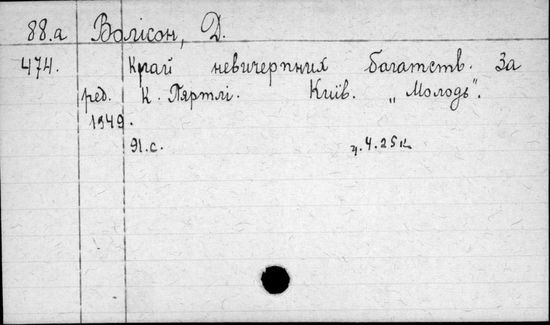 88.а Волісон, Д.
474. Край невичерпних багатств. За
ред. К. Пяртлі. Київ. „Молодь".
1949.
91.с. ц. 4.25 к